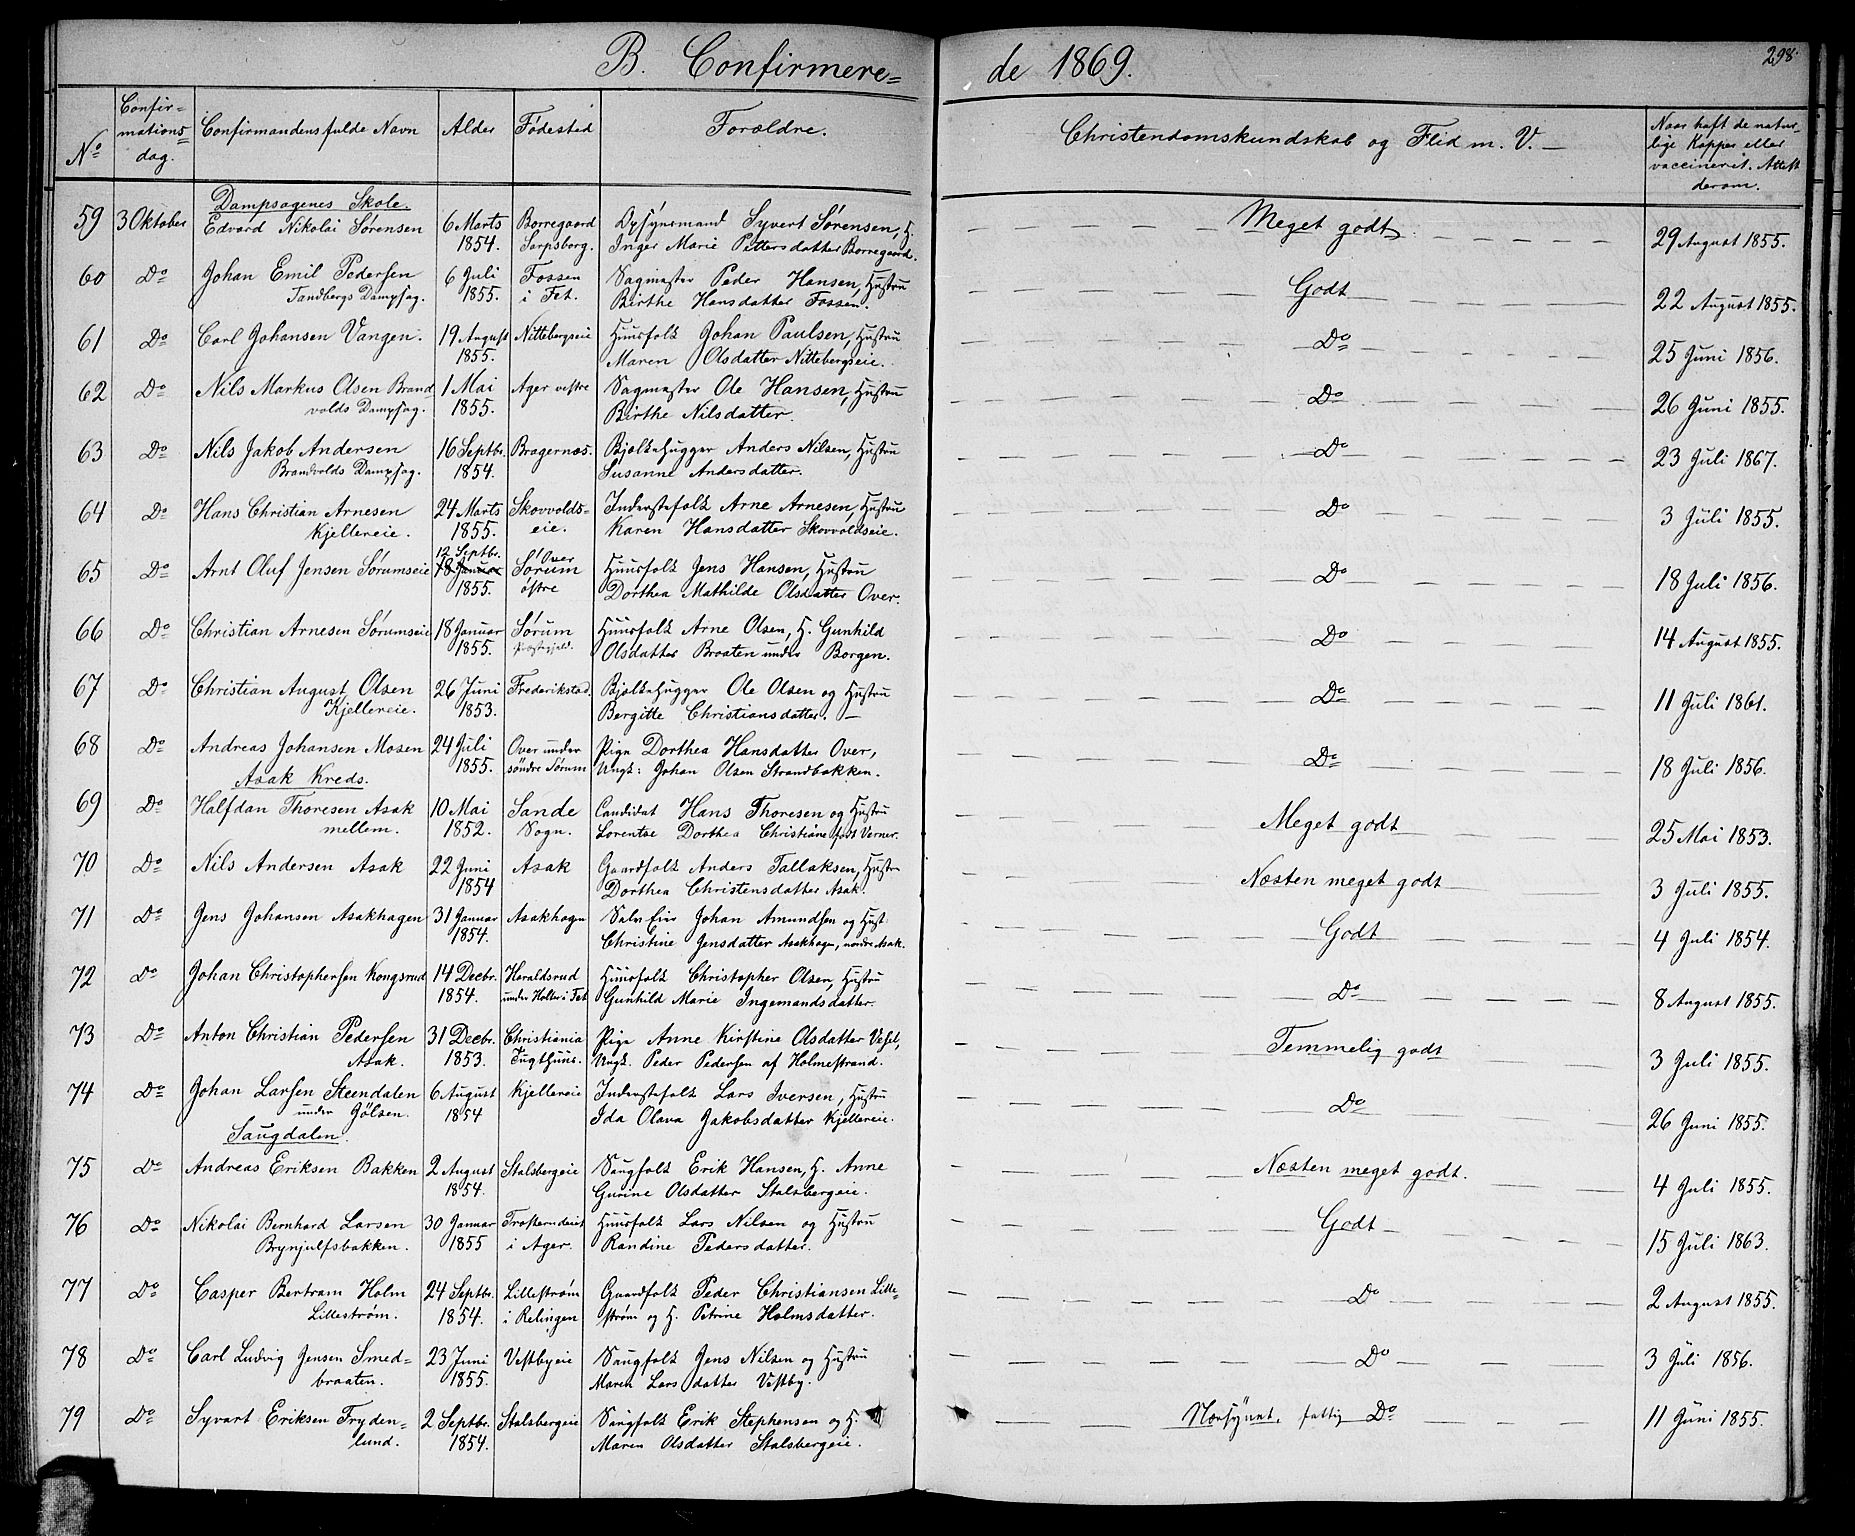 B. Confirmere= de 1869. 298.
No Confir=mations=dag. Confirmandens fulde Navn Alder Fødested Forældre. Christendomskundskab og Flid m. V. Naar haft de natur=lige Kopper eller vaccinerit. Attest derom.
Dampsagenes Skole.
59 3 Oktober Edvard Nikolai Sørensen 6 Marts 1854. Borregaard Sarpsborg. Opsynsmand Syvert Sørensen, H. Inger Marie Pettersdatter Borregaard. Meget godt 29 August 1855.
60 Do Johan Emil Pedersen Tandbergs Dampsag. 6 Juli 1855. Fossen i Fet. Sagmester Peder Hansen, Hustru Birthe Hansdatter Fossen. Godt 22 August 1855.
61 Do Carl Johansen Vangen. 19 August 1855. Nittebergseie Huusfolk Johan Paulsen, Hustru Maren Olsdatter Nittebergseie. Do 25 Juni 1856.
62 Do Nils Markus Olsen Brandvolds Dampsag. 1 Mai 1855. Ager vestre Sagmester Ole Hansen, Hustru Birthe Nilsdatter. Do 26 Juni 1855.
63 Do Nils Jakob Andersen Brandvolds Dampsag. 16 Septbr. 1854. Bragernæs. Bjelkehugger Anders Nilsen, Hustru Susanne Andersdatter. Do 23 Juli 1867.
64 Do Hans Christian Arnesen Kjellereie. 24 Marts 1855. Skovvolds=eie. Inderstefolk Arne Arnesen, Hustru Karen Hansdatter Skovvoldseie. Do 3 Juli 1855.
65 Do Arnt Oluf Jensen Sørumseie 12 Septbr. 18 Januar 1855. Over Sørum østre Huusfolk Jens Hansen, Hustru Dorthea Mathilde Olsdatter Over. Do 18 Juli 1856.
66 Do Christian Arnesen Sørumseie 18 Januar 1855. Sørum Præstegjeld. Huusfolk Arne Olsen, H. Gunhild Olsdatter Braaten under Borgen. Do 14 August 1855.
67 Do Christian August Olsen Kjellereie. 26 Juni 1853. Frederikstad. Bjelkehugger Ole Olsen og Hustru Bergitte Christiansdatter. Do 11 Juli 1861.
68 Do Andreas Johansen Mosen 24 Juli 1855. Over under søndre Sørum Pige Dorthea Hansdatter Over, Ungk: Johan Olsen Strandbakken. Do 18 Juli 1856.
Asak Kreds.
69 Do Halfdan Thoresen Asak mellem. 10 Mai 1852. Sande Sogn. Candidat Hans Thoresen og Hustru Lorentse Dorthea Christiane født Verner. Meget godt 25 Mai 1853.
70 Do Nils Andersen Asak 22 Juni 1854 Asak Gaardfolk Anders Tallaksen, Hustr Dorthea Christensdatter Asak. Næsten meget godt 3 Juli 1855.
71 Do Jens Johansen Asakhagen 31 Januar 1854. Asakhagen Selveier Johan Amundsen og Hust. Christine Jensdatter Asakhagen, nordre Asak. Godt 4 Juli 1854.
72 Do Johan Christophersen Kongsrud 14 Decbr. 1854. Haraldsrud under Holter i Fet Huusfolk Christopher Olsen, Hustru Gunhild Marie Ingemandsdatter. Do 8 August 1855.
73 Do Anton Christian Pedersen Asak. 31 Decbr. 1853. Christiania Tugthuus. Pige Anne Kirstine Olsdatter Vesel, Ungk. Peder Pedersen af Holmestrand. Temmelig godt 3 Juli 1855.
74 Do Johan Larsen Steendalen under Gjølsen. 6 August 1854 Kjellereie Inderstefolk Lars Iversen, Hustru Ida Olava Jakobsdatter Kjellereie. Do 26 Juni 1855.
Saugdalen.
75 Do Andreas Eriksen Bakken 2 August 1854. Stalsbergeie Saugfolk Erik Hansen, H. Anne Gurine Olsdatter Stalsbergeie. Næsten meget godt. 4 Juli 1855.
76 Do Nikolai Bernhard Larsen Brynjulfsbakken. 30 Januar 1855 i Ager. Huusfolk Lars Nilsen og Hustru Randine Pedersdatter. Godt 15 Juli 1863.
77 Do Casper Bertram Holm Lillestrøm. 24 Septbr. 1854. Lillestrøm i Relingen Gaardfolk Peder Christiansen Lille=strøm og H. Petrine Holmsdatter. Do 2 August 1855.
78 Do Carl Ludvig Jensen Smed=braaten. 23 Juni 1855. Vestbyeie Saugfolk Jens Nilsen og Hustru Maren Larsdatter Vestby. Do 3 Juli 1856.
79 Do Syvart Eriksen Fryden=lund. 2 Septbr. 1854. Stalsbergeie Saugfolk Erik Stephensen og H. Maren Olsdatter Stalsbergeie. Nærsynet, fattig Do 11 Juni 1855.